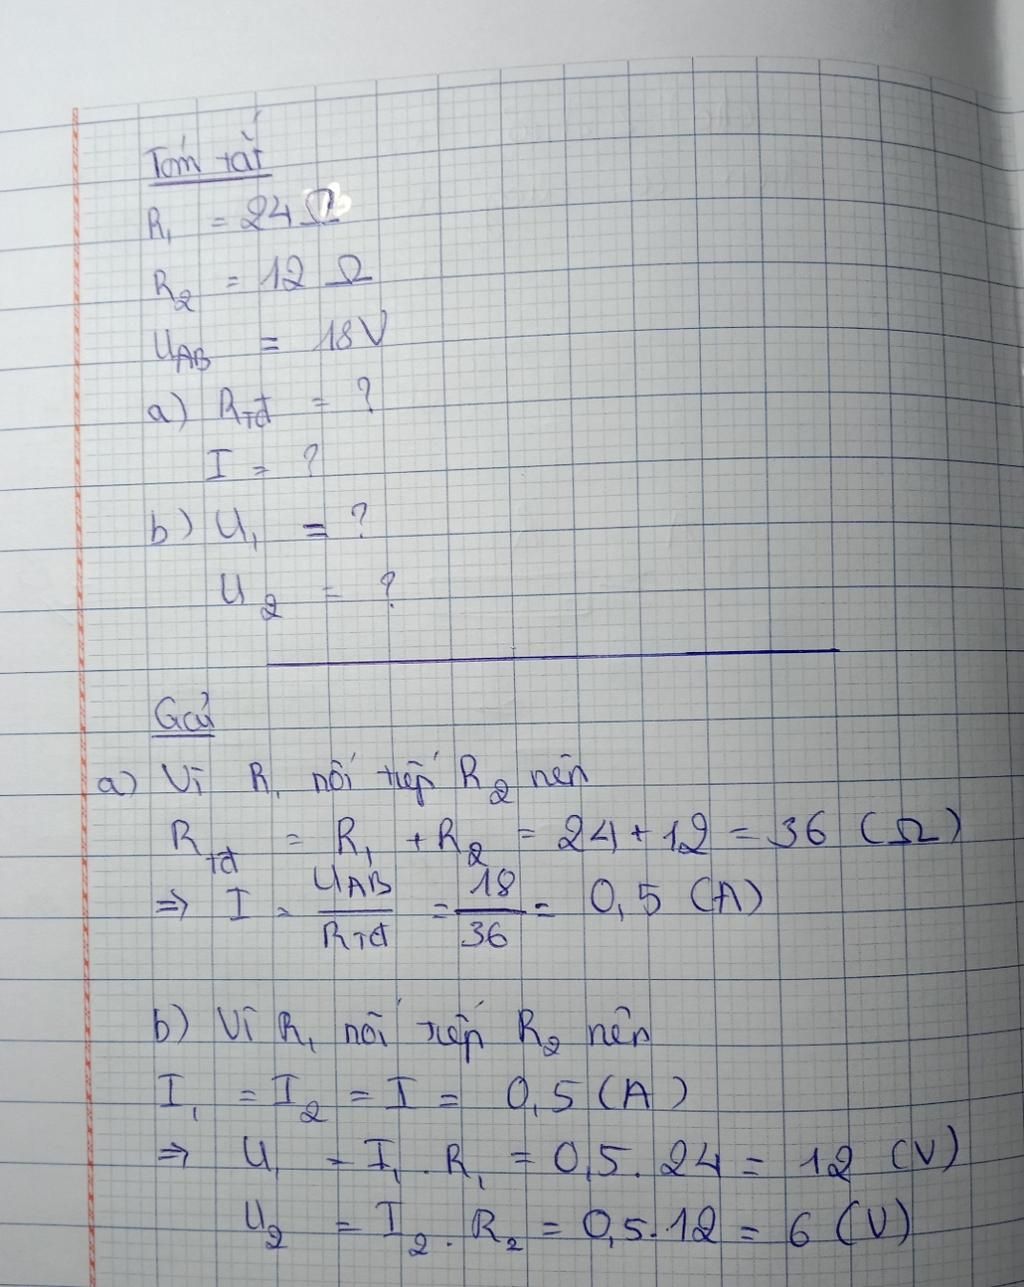 Tóm tắt
R₁ = 24 Ω
R₂ = 12 Ω
U_AB = 18V
a) R_Tđ = ?
I = ?
b) U₁ = ?
U₂ = ?
Gải
a) Vì R₁ nối tiếp R₂ nên
R_Tđ = R₁ + R₂ = 24 + 12 = 36 (Ω)
⇒ I = U_AB / R_Tđ = 18 / 36 = 0,5 (A)
b) Vì R₁ nối tiếp R₂ nên
I₁ = I₂ = I = 0,5 (A)
⇒ U₁ = I₁ . R₁ = 0,5 . 24 = 12 (V)
U₂ = I₂ . R₂ = 0,5 . 12 = 6 (V)